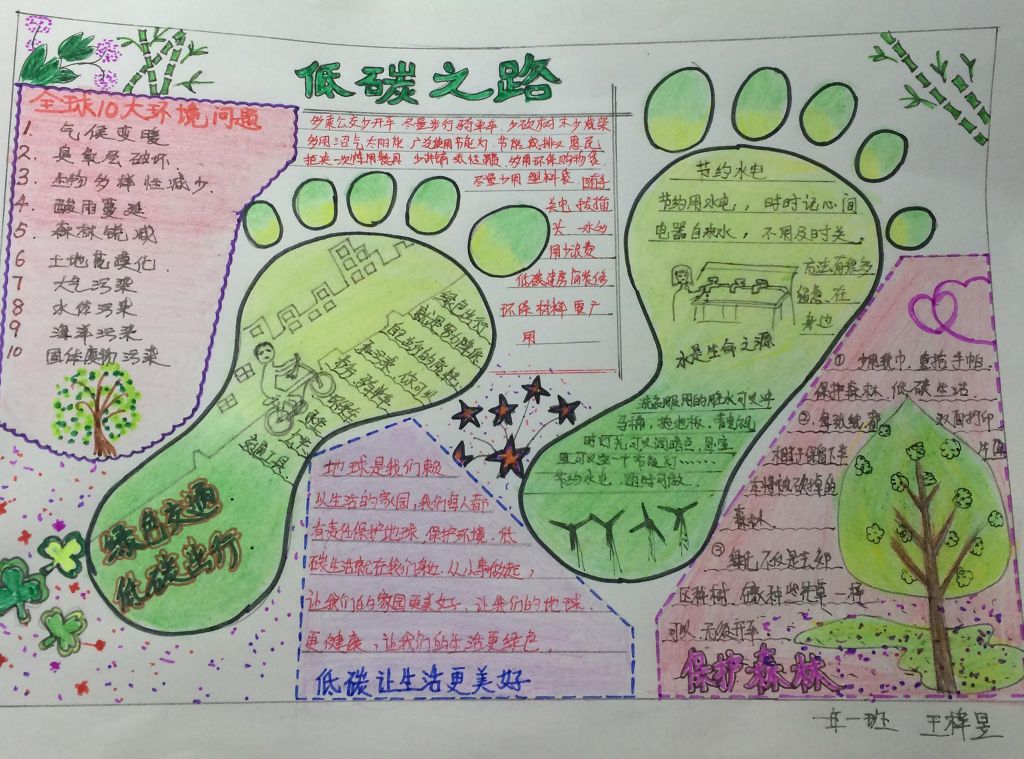 低碳之路
全球10大环境问题
1. 气候变暖
2. 臭氧层破坏
3. 生物多样性减少
4. 酸雨蔓延
5. 森林锐减
6 土地荒漠化
7 大气污染
8 水体污染
9 海洋污染
10 固体废物污染
多乘公交少开车 尽量步行骑单车 少砍树木少烧柴
多用沼气太阳能 广泛使用节能灯 节能减排又惠民
拒决一次性用餐具
尽量少用塑料袋 随手
关电拔插
关一水的
用少浪费
低碳建房间装修
环保材料要广
用
绿色出行
就是多步路
自己的
你可以
交通工具
绿色交通
低碳出行
节约水电
节约用水电，时时记心间
电器自来水，不用及时关
方法有很多
在
身边
水是生命之源
洗衣服用的脏水可以冲
马桶，拖地板，
时灯光可以调暗点，
节约水电，随时可做
地球是我们赖
以生活的家园，我们每人都
有责任保护地球 保护环境．低
碳生活就在我们身边．从小事做起，
让我们的家园更美好，让我们的地球
更健康，让我们的生活更绿色
低碳让生活更美好
① 少用纸巾，重拾手帕
保护森林 低碳生活
② 每张纸都 双面打印
相当于保留下半 片
原本将被砍掉的
森林
③
可以
保护森林
一年一班 王梓昱